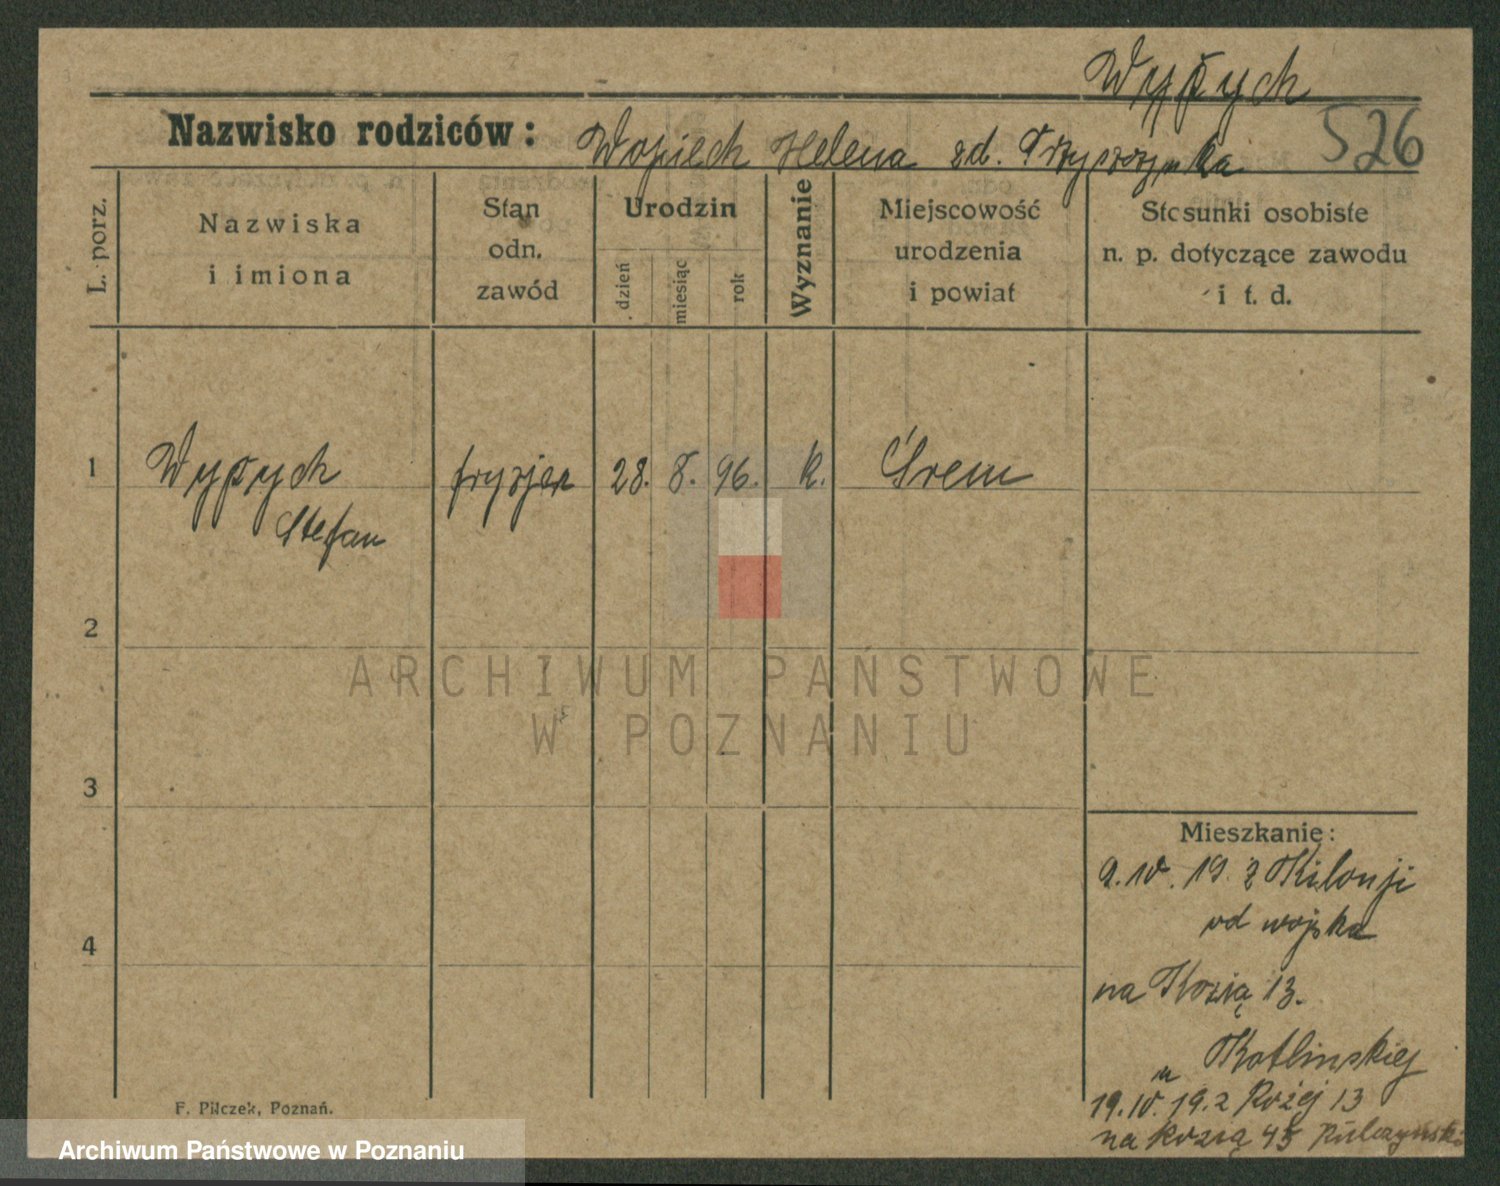 Wypych
Nazwisko rodziców: Wojciech Helena zd.
526
L. porz.
Nazwiska
i imiona
Stan
odn.
zawód
Urodzin
dzień
miesiąc
rok
Wyznanie
Miejscowość
urodzenia
i powiat
Stosunki osobiste
n. p. dotyczące zawodu
i t. d.
1
Wypych
Stefan
fryzjer
28. 8. 96.
k.
Śrem
2
ARCHIWUM PAŃSTWOWE
W POZNANIU
3
4
Mieszkanie:
9. IV. 19. z Kilonji
od wojska
na Kozią 13.
u Kotlinskiej
19. IV. 19. z Koziej 13
na Kozią 45
F. Pilczek, Poznań.
Archiwum Państwowe w Poznaniu